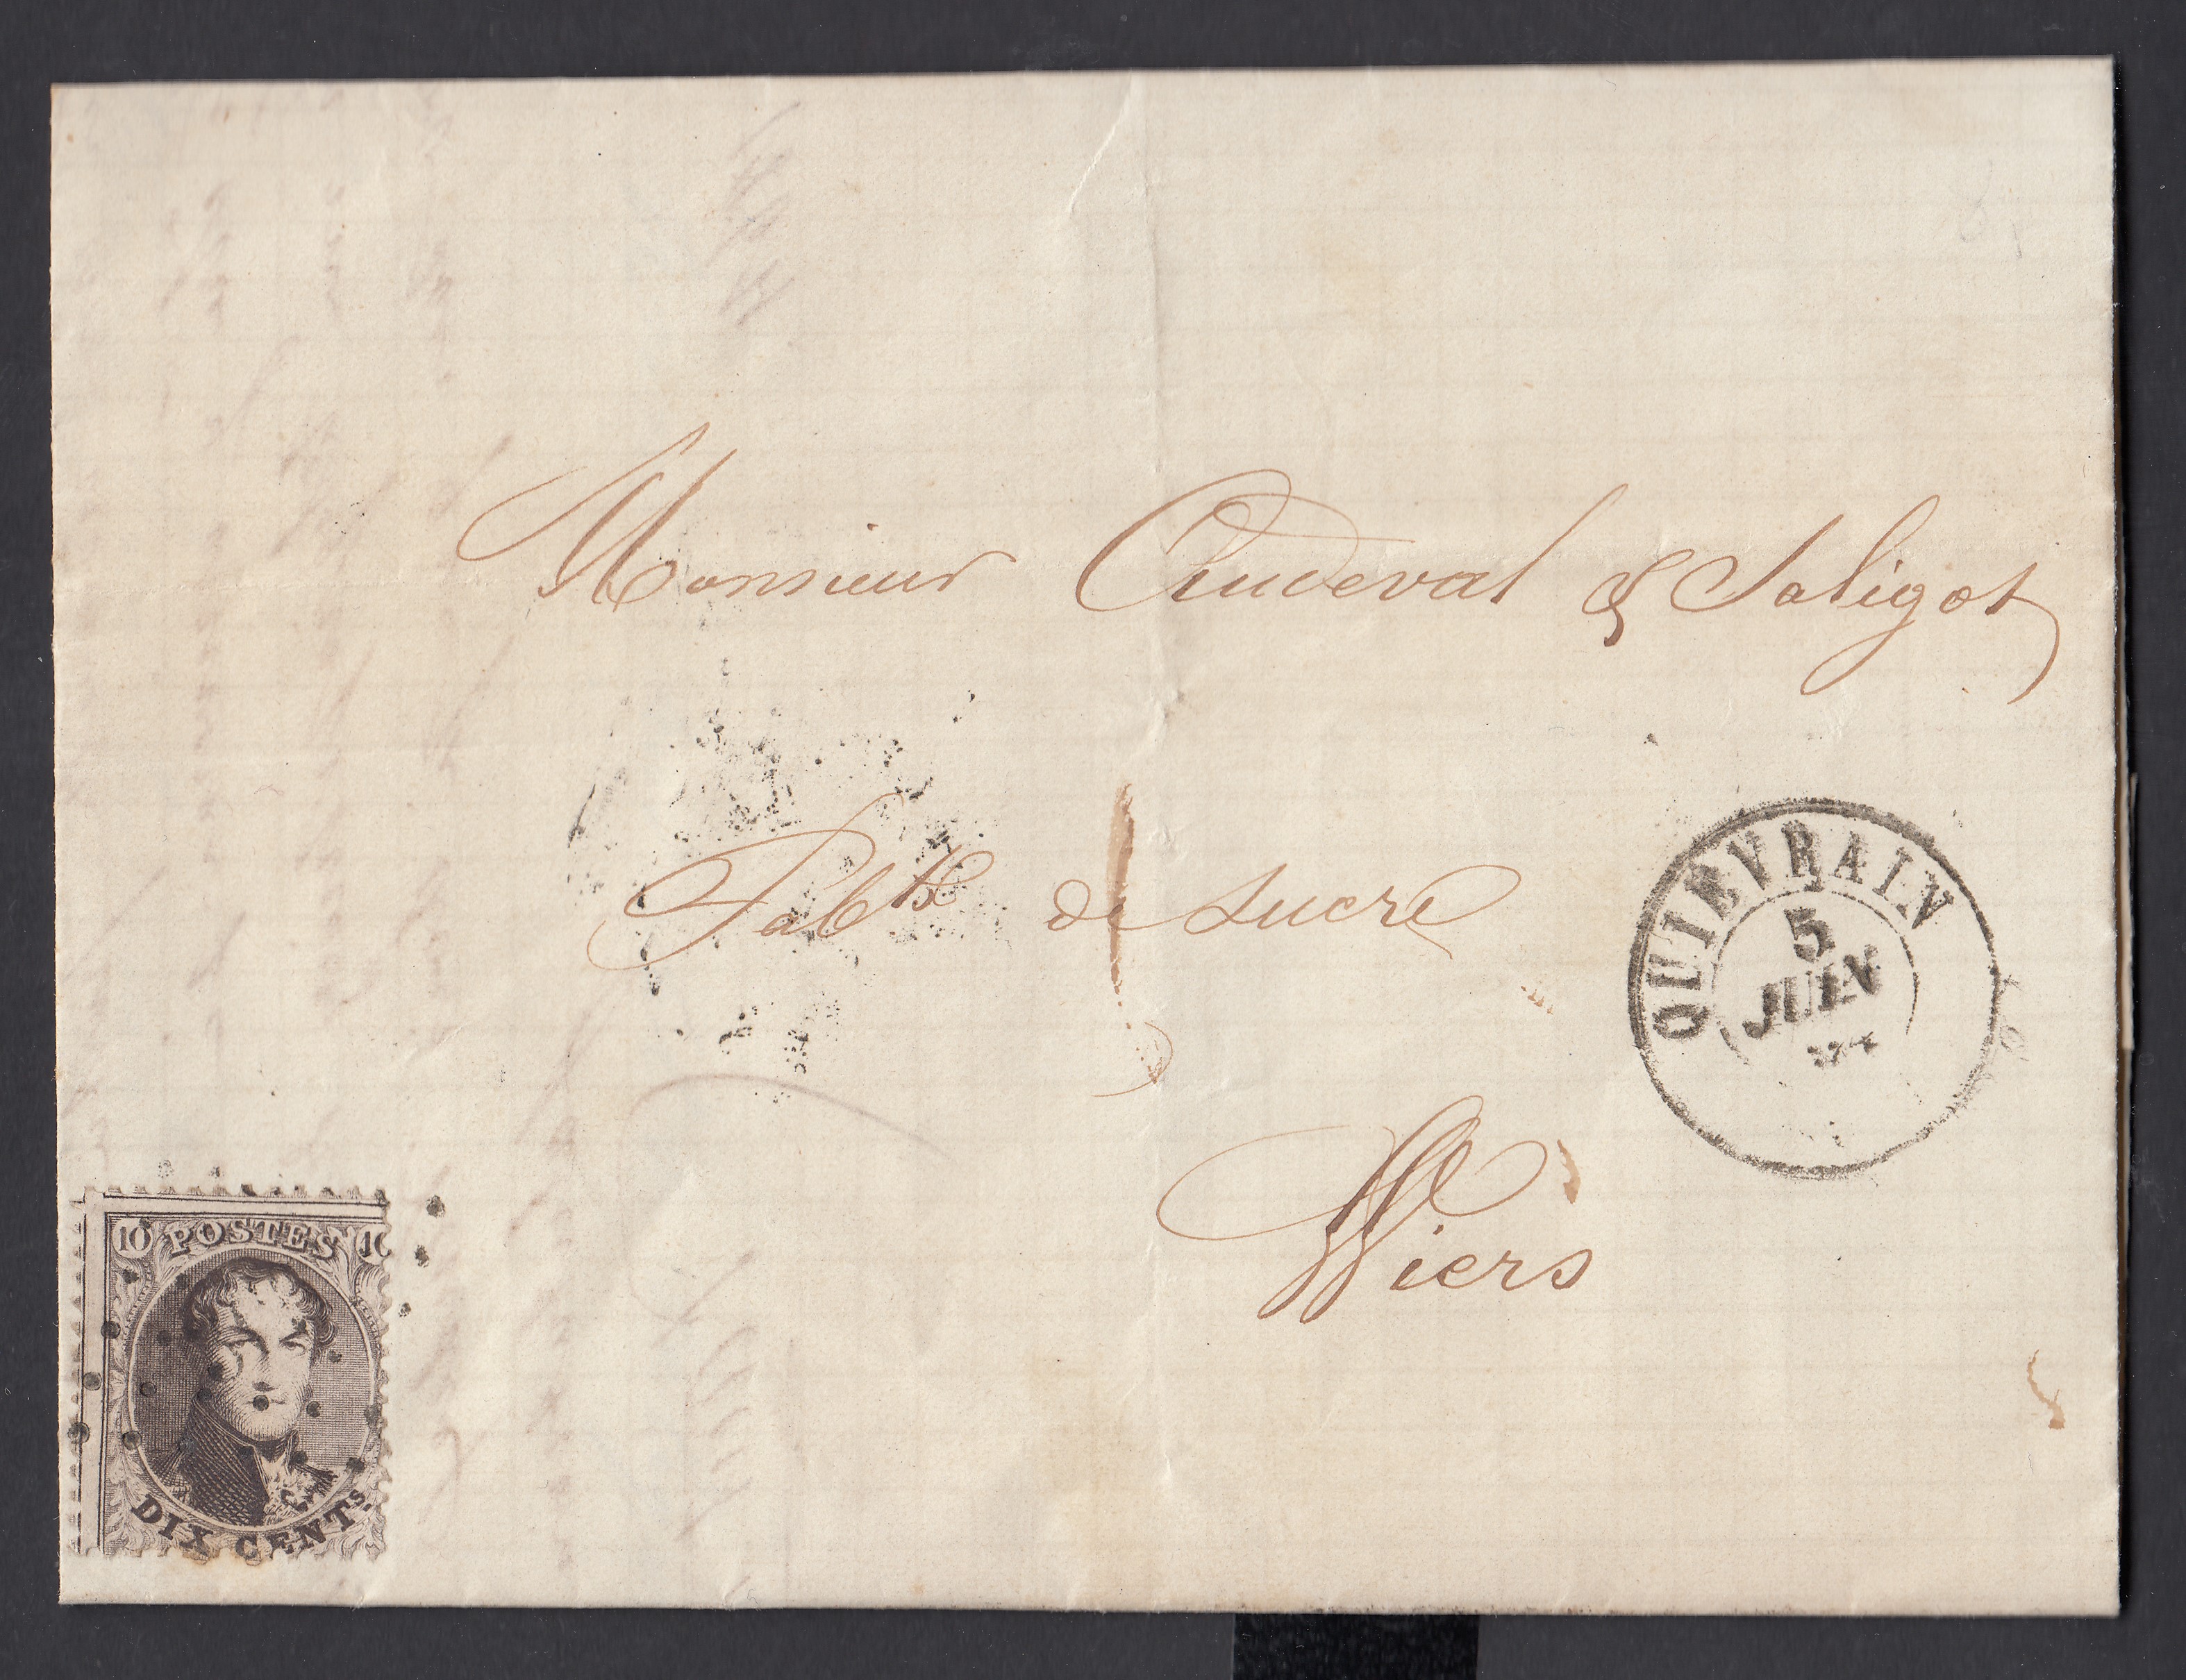 Monsieur Audeval & Saligot
Fabte de sucre
QUIEVRAIN
5
JUIN
Wiers
10 POSTES 10
DIX CENTS.